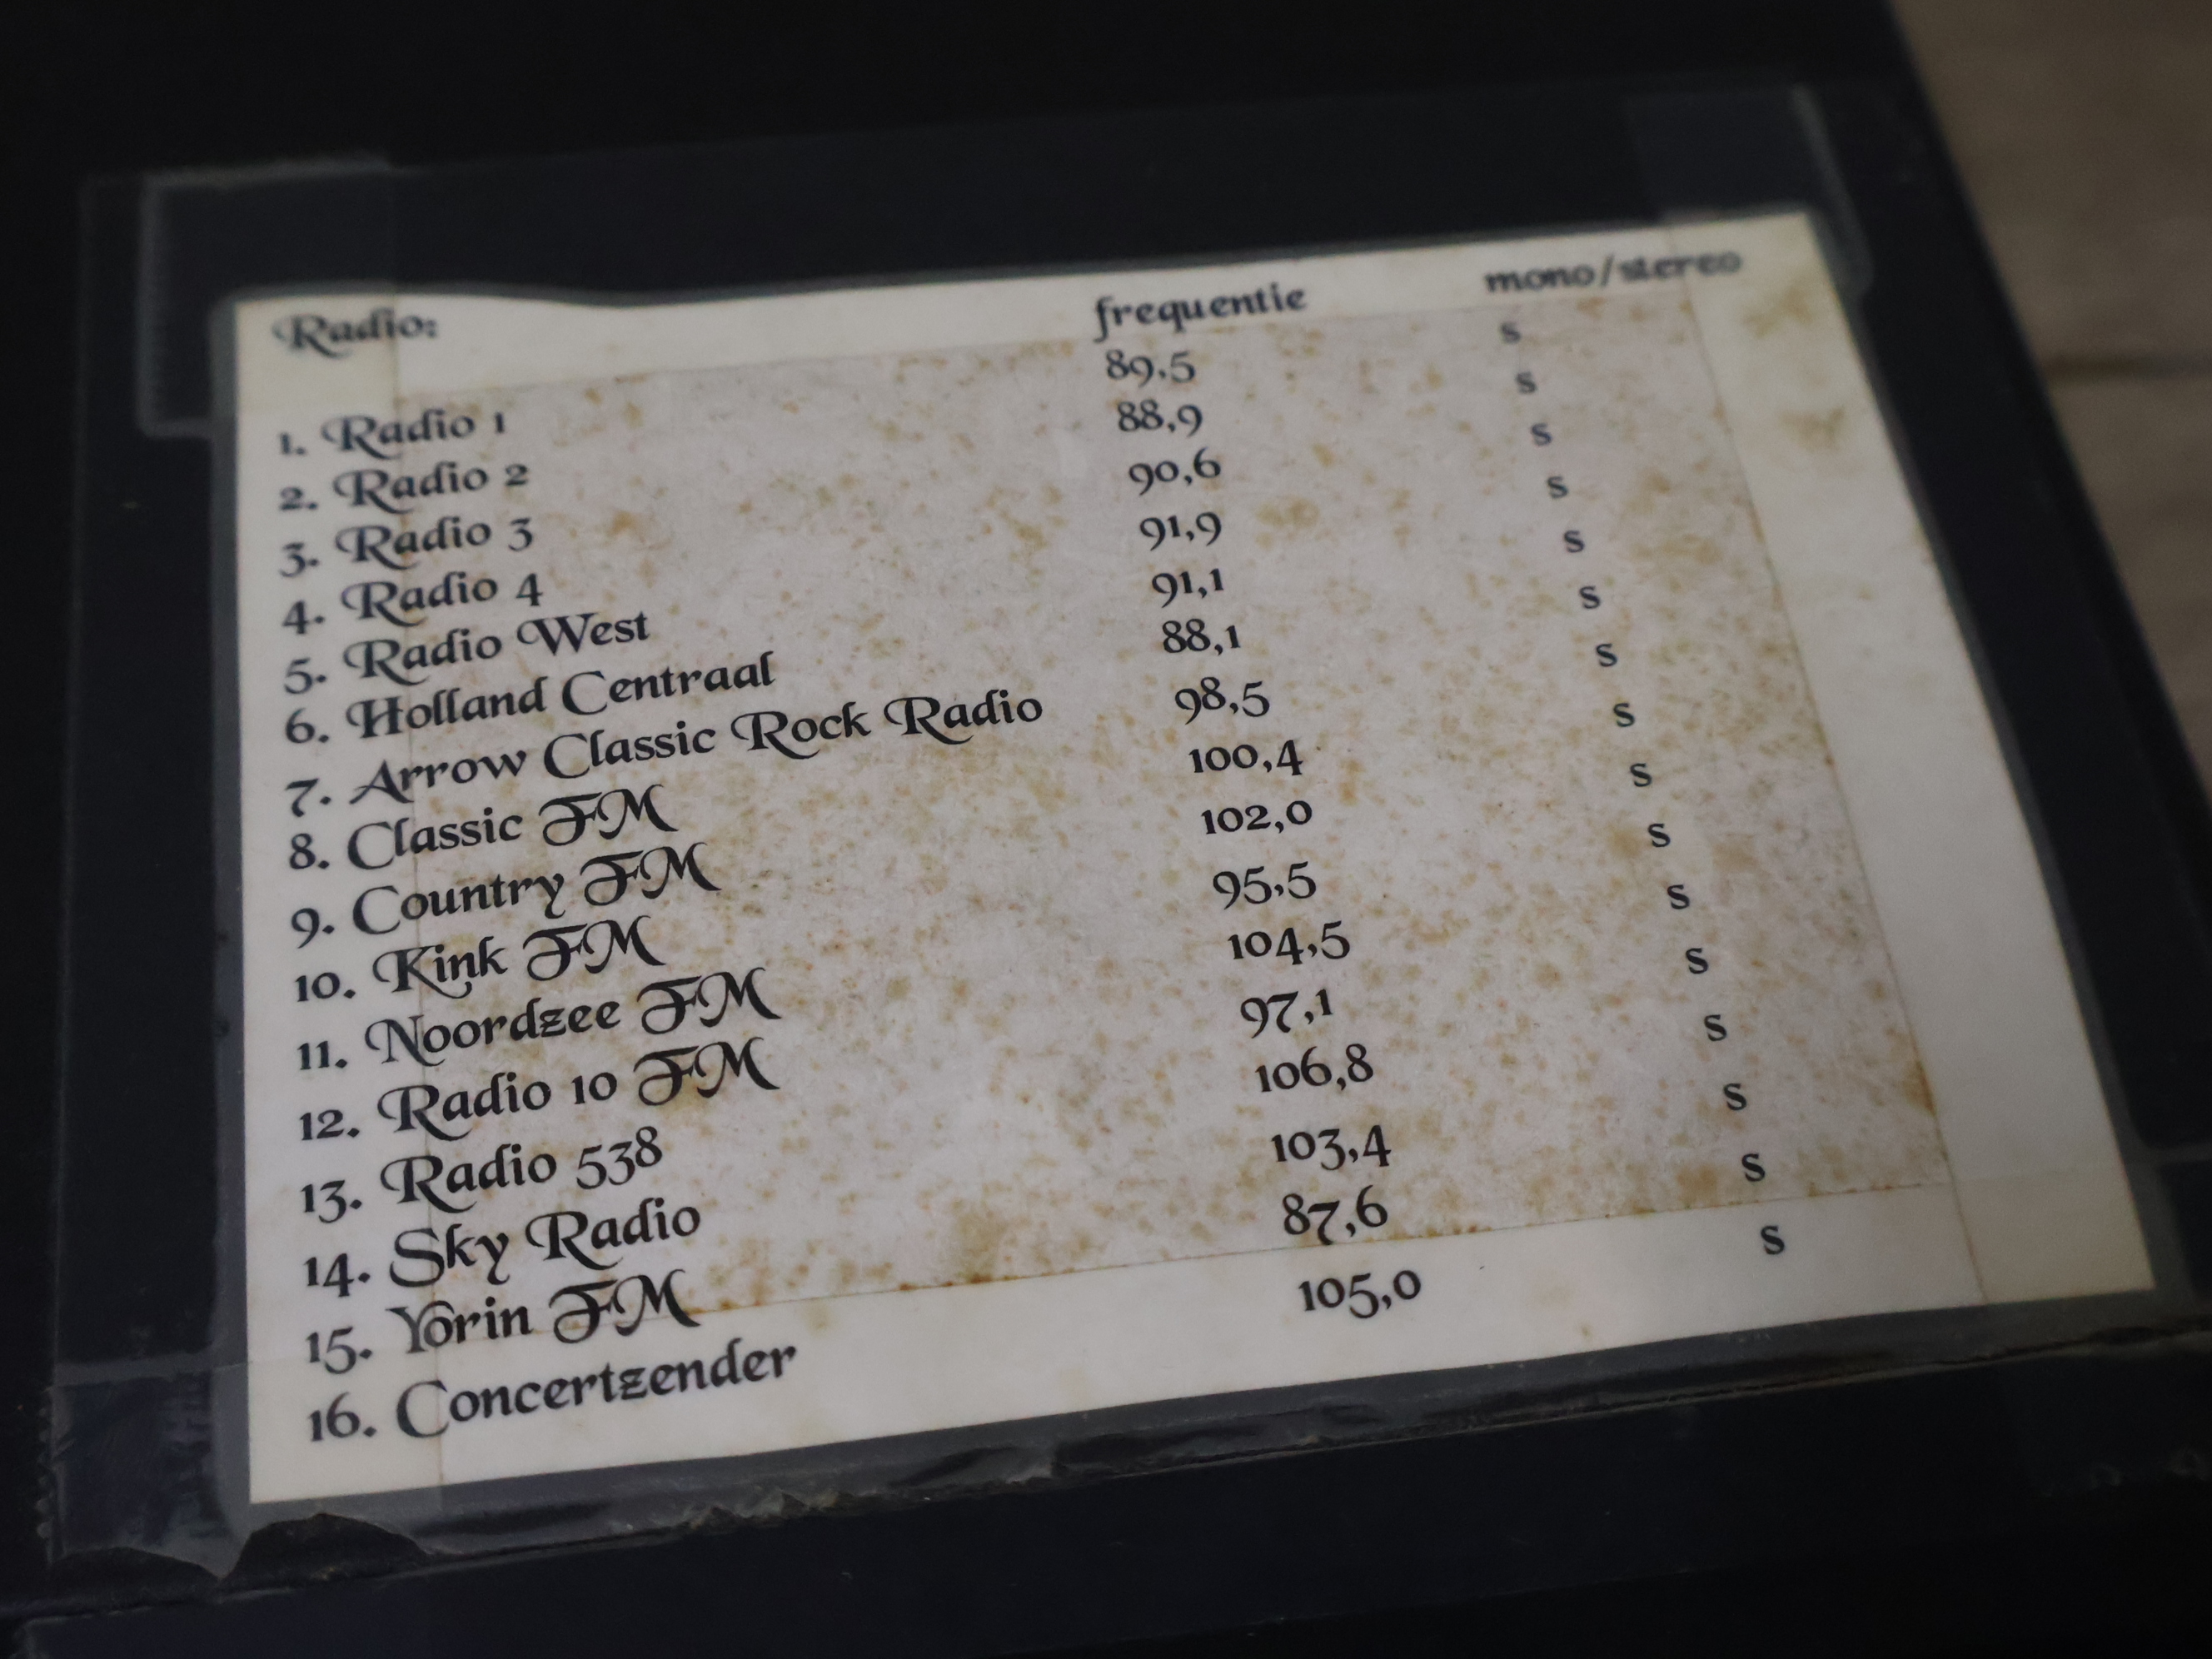 Radio: frequentie mono/stereo
1. Radio 1 89.5 s
2. Radio 2 88,9 s
3. Radio 3 90,6 s
4. Radio 4 91,9 s
5. Radio West 91,1 s
6. Holland Centraal 88,1 s
7. Arrow Classic Rock Radio 98,5 s
8. Classic FM 100,4 s
9. Country FM 102,0 s
10. Kink FM 95,5 s
11. Noordzee FM 104,5 s
12. Radio 10 FM 97,1 s
13. Radio 538 106,8 s
14. Sky Radio 103,4 s
15. Yorin FM 87,6 s
16. Concertzender 105,0 s